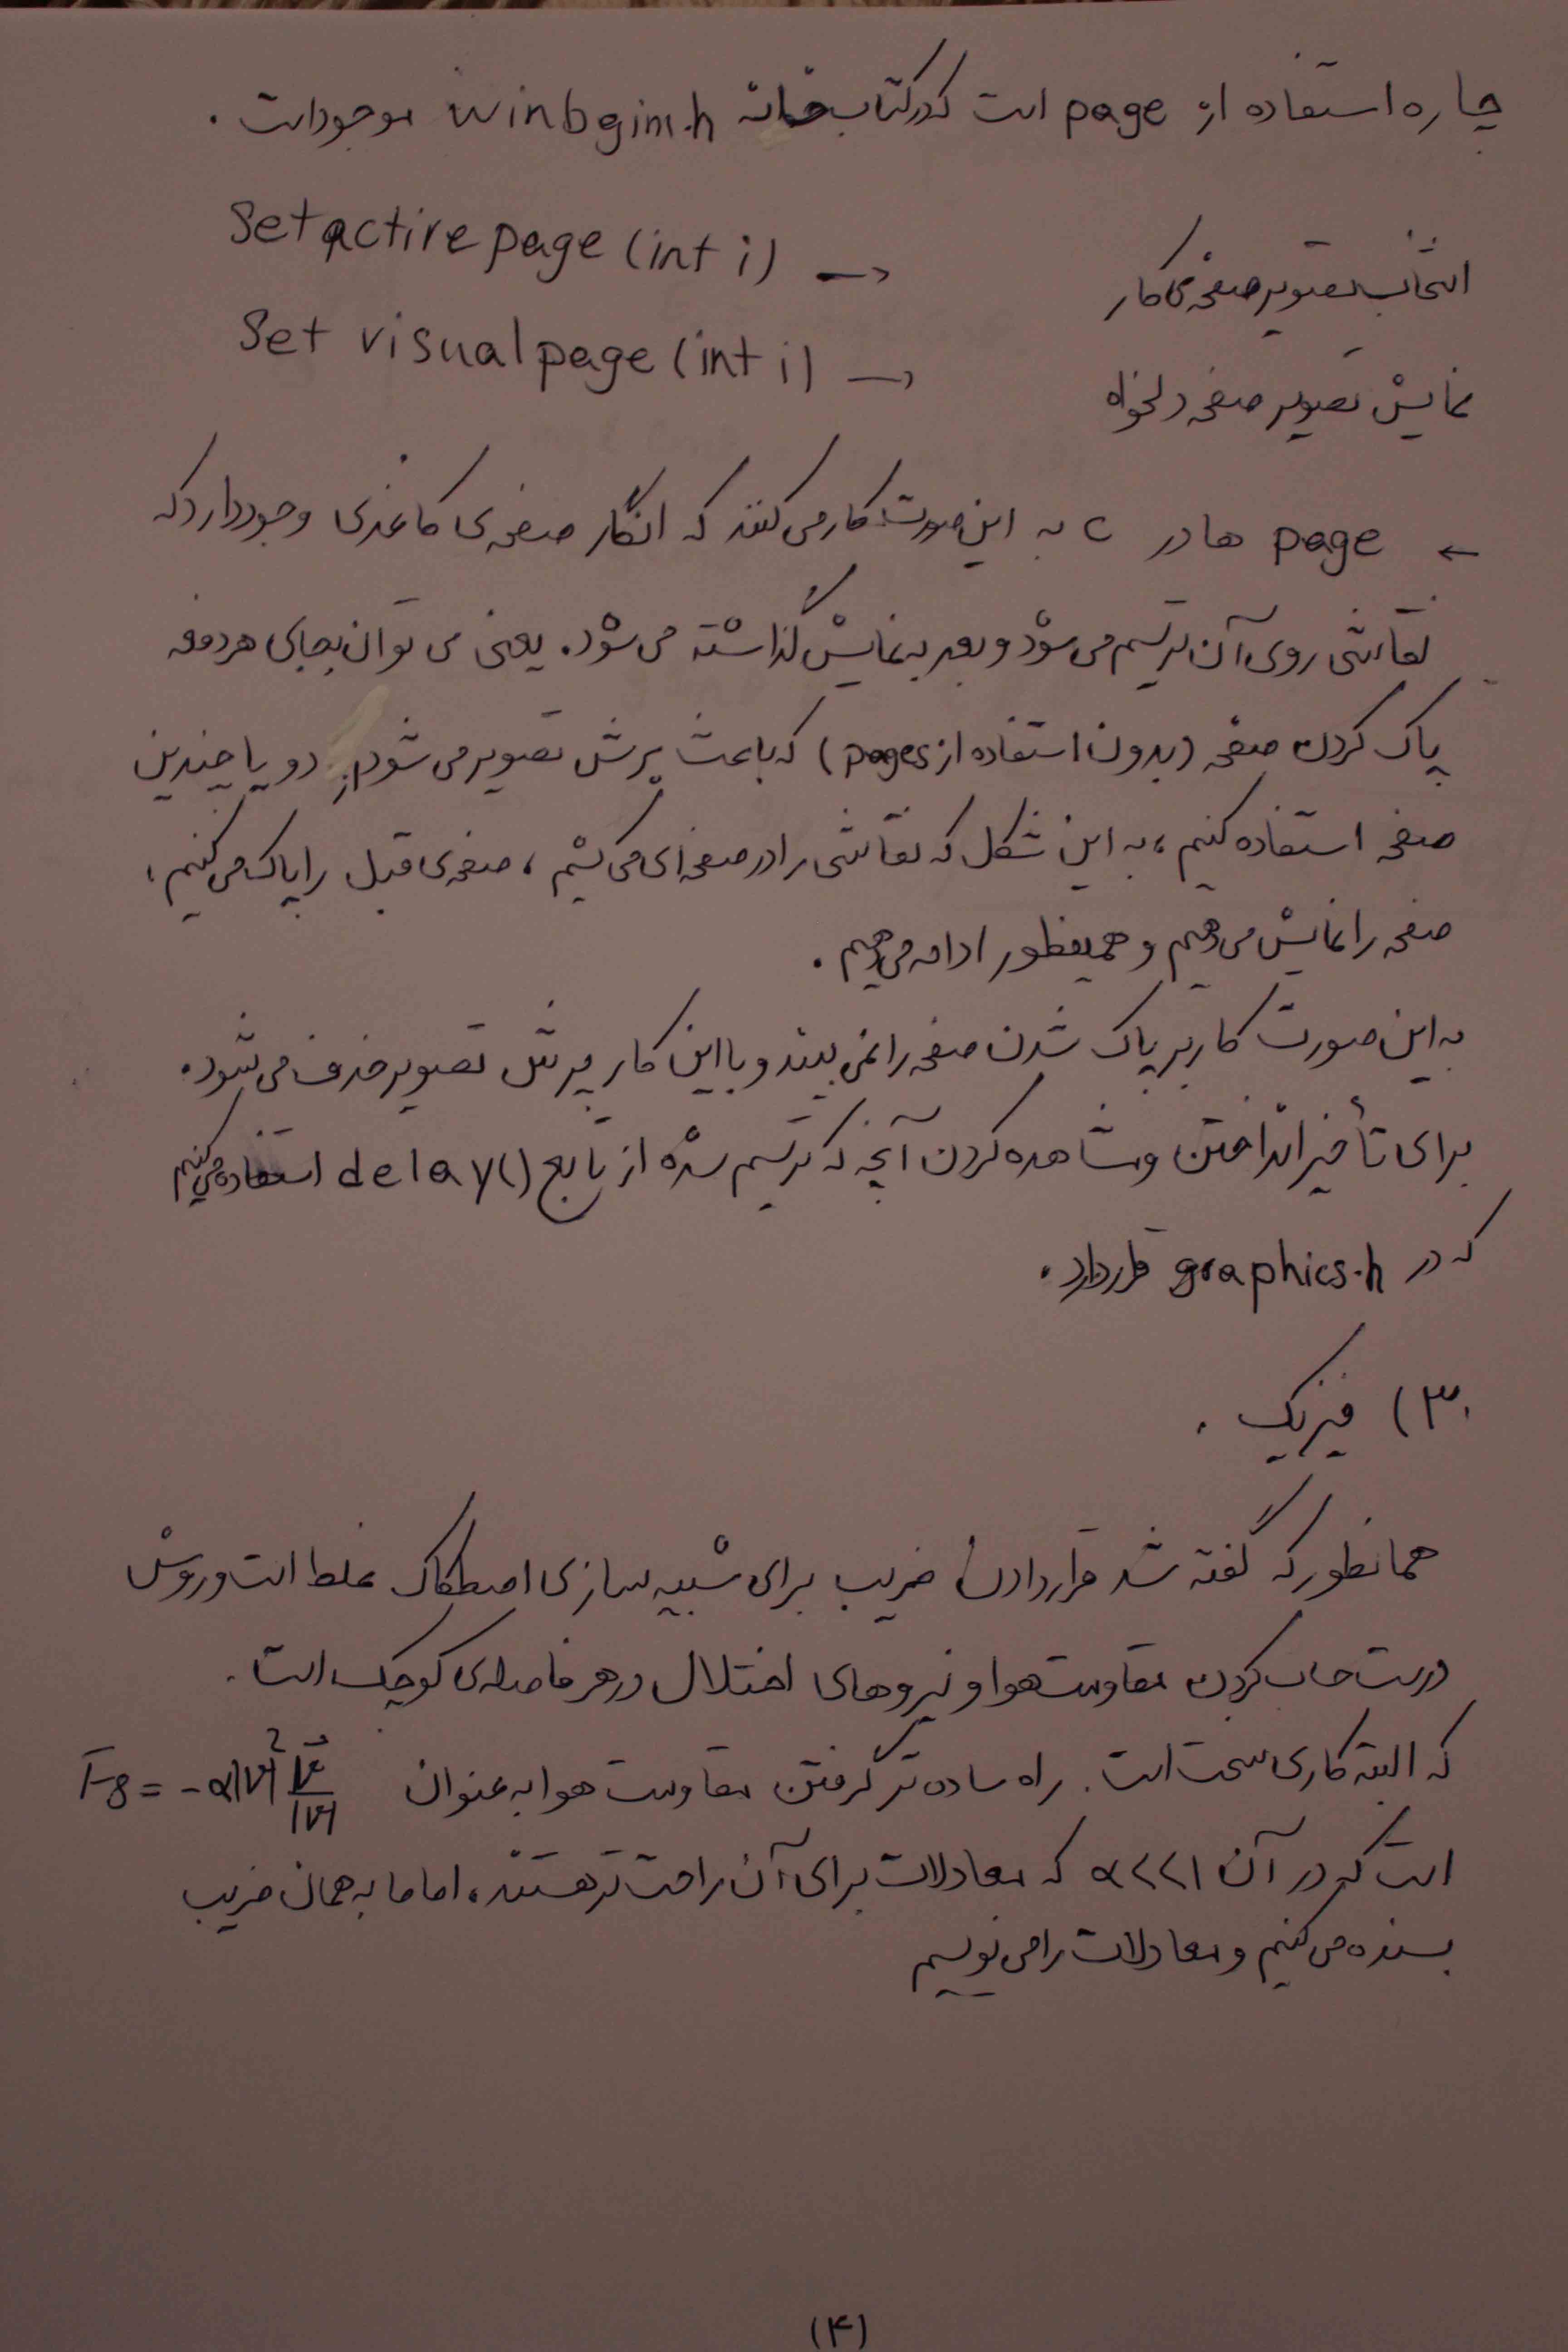 چاره استفاده از page است که در کتاب‌خانه winbgim.h موجود است .
Setactivepage (int i) → انتخاب تصویر صفحه‌ی کار
Set visualpage (int i) → نمایش تصویر صفحه دلخواه
← page ها در c به این صورت کار می کنند که انگار صفحه‌ی کاغذی وجود دارد که
نقاشی روی آن ترسیم می شود و بعد به نمایش گذاشته می شود. یعنی می توان بجای هر دفعه
پاک کردن صفحه (بدون استفاده از pages) که باعث پرش تصویر می شود از دو یا چندین
صفحه استفاده کنیم ، به این شکل که نقاشی را در صفحه‌ای می کشیم ، صفحه‌ی قبل را پاک می کنیم ،
صفحه را نمایش می دهیم و همینطور ادامه می دهیم .
به این صورت کاربر پاک شدن صفحه را نمی بیند و با این کار پرش تصویر حذف می شود.
برای تأخیر انداختن و مشاهده کردن آنچه که ترسیم شده از تابع delay() استفاده می کنیم
که در graphics.h قرار دارد .
۳) فیزیک .
همانطور که گفته شد قرار دادن ضریب برای شبیه سازی اصطکاک غلط است و روش
درست حساب کردن مقاومت هوا و نیروهای اختلال در هر فاصله‌ی کوچک است .
که البته کاری سخت است . راه ساده تر گرفتن مقاومت هوا به عنوان F = -α|v|² v⃗/|v|
است که در آن α<<1 که معادلات برای آن راحت تر هستند ، اما ما به همان ضریب
بسنده می کنیم و معادلات را می نویسیم
(۴)